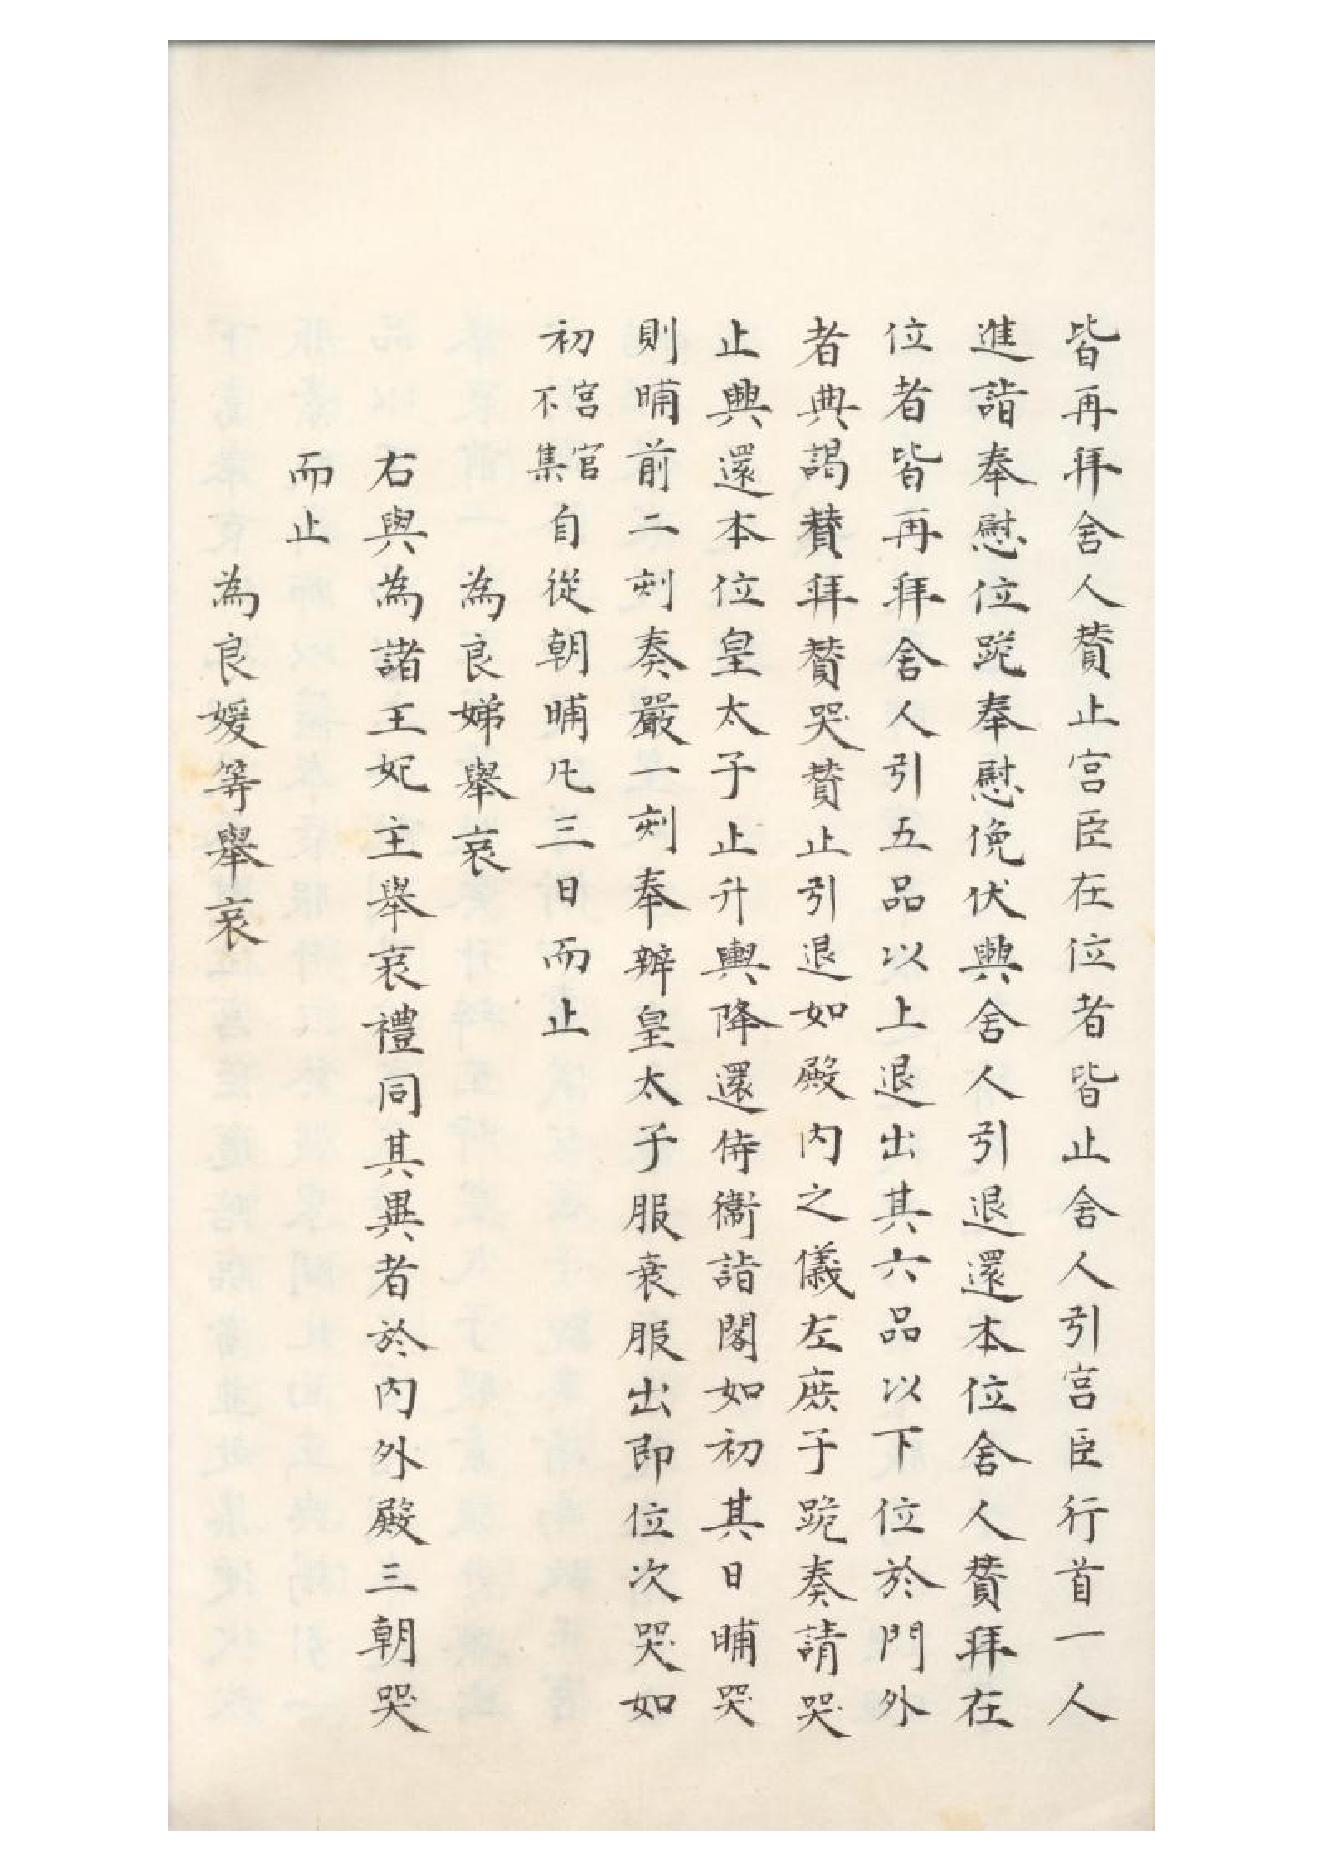 皆再拜舍人賛止宫臣在位者皆止舍人引宫臣行首一人
進詣奉慰位跪奉慰俛伏興舍人引退還本位舍人賛拜在
位者皆再拜舍人引五品以上退出其六品以下位於門外
者典謁賛拜賛哭賛止引退如殿内之儀左庶子跪奏請哭
止興還本位皇太子止升輿降還侍衞詣閤如初其日晡哭
則晡前二刻奏嚴一刻奉辦皇太子服衰服出即位次哭如
初宫官不集自從朝晡凡三日而止
為良娣舉哀
右與為諸王妃主舉哀禮同其異者於内外殿三朝哭
而止
為良媛等舉哀